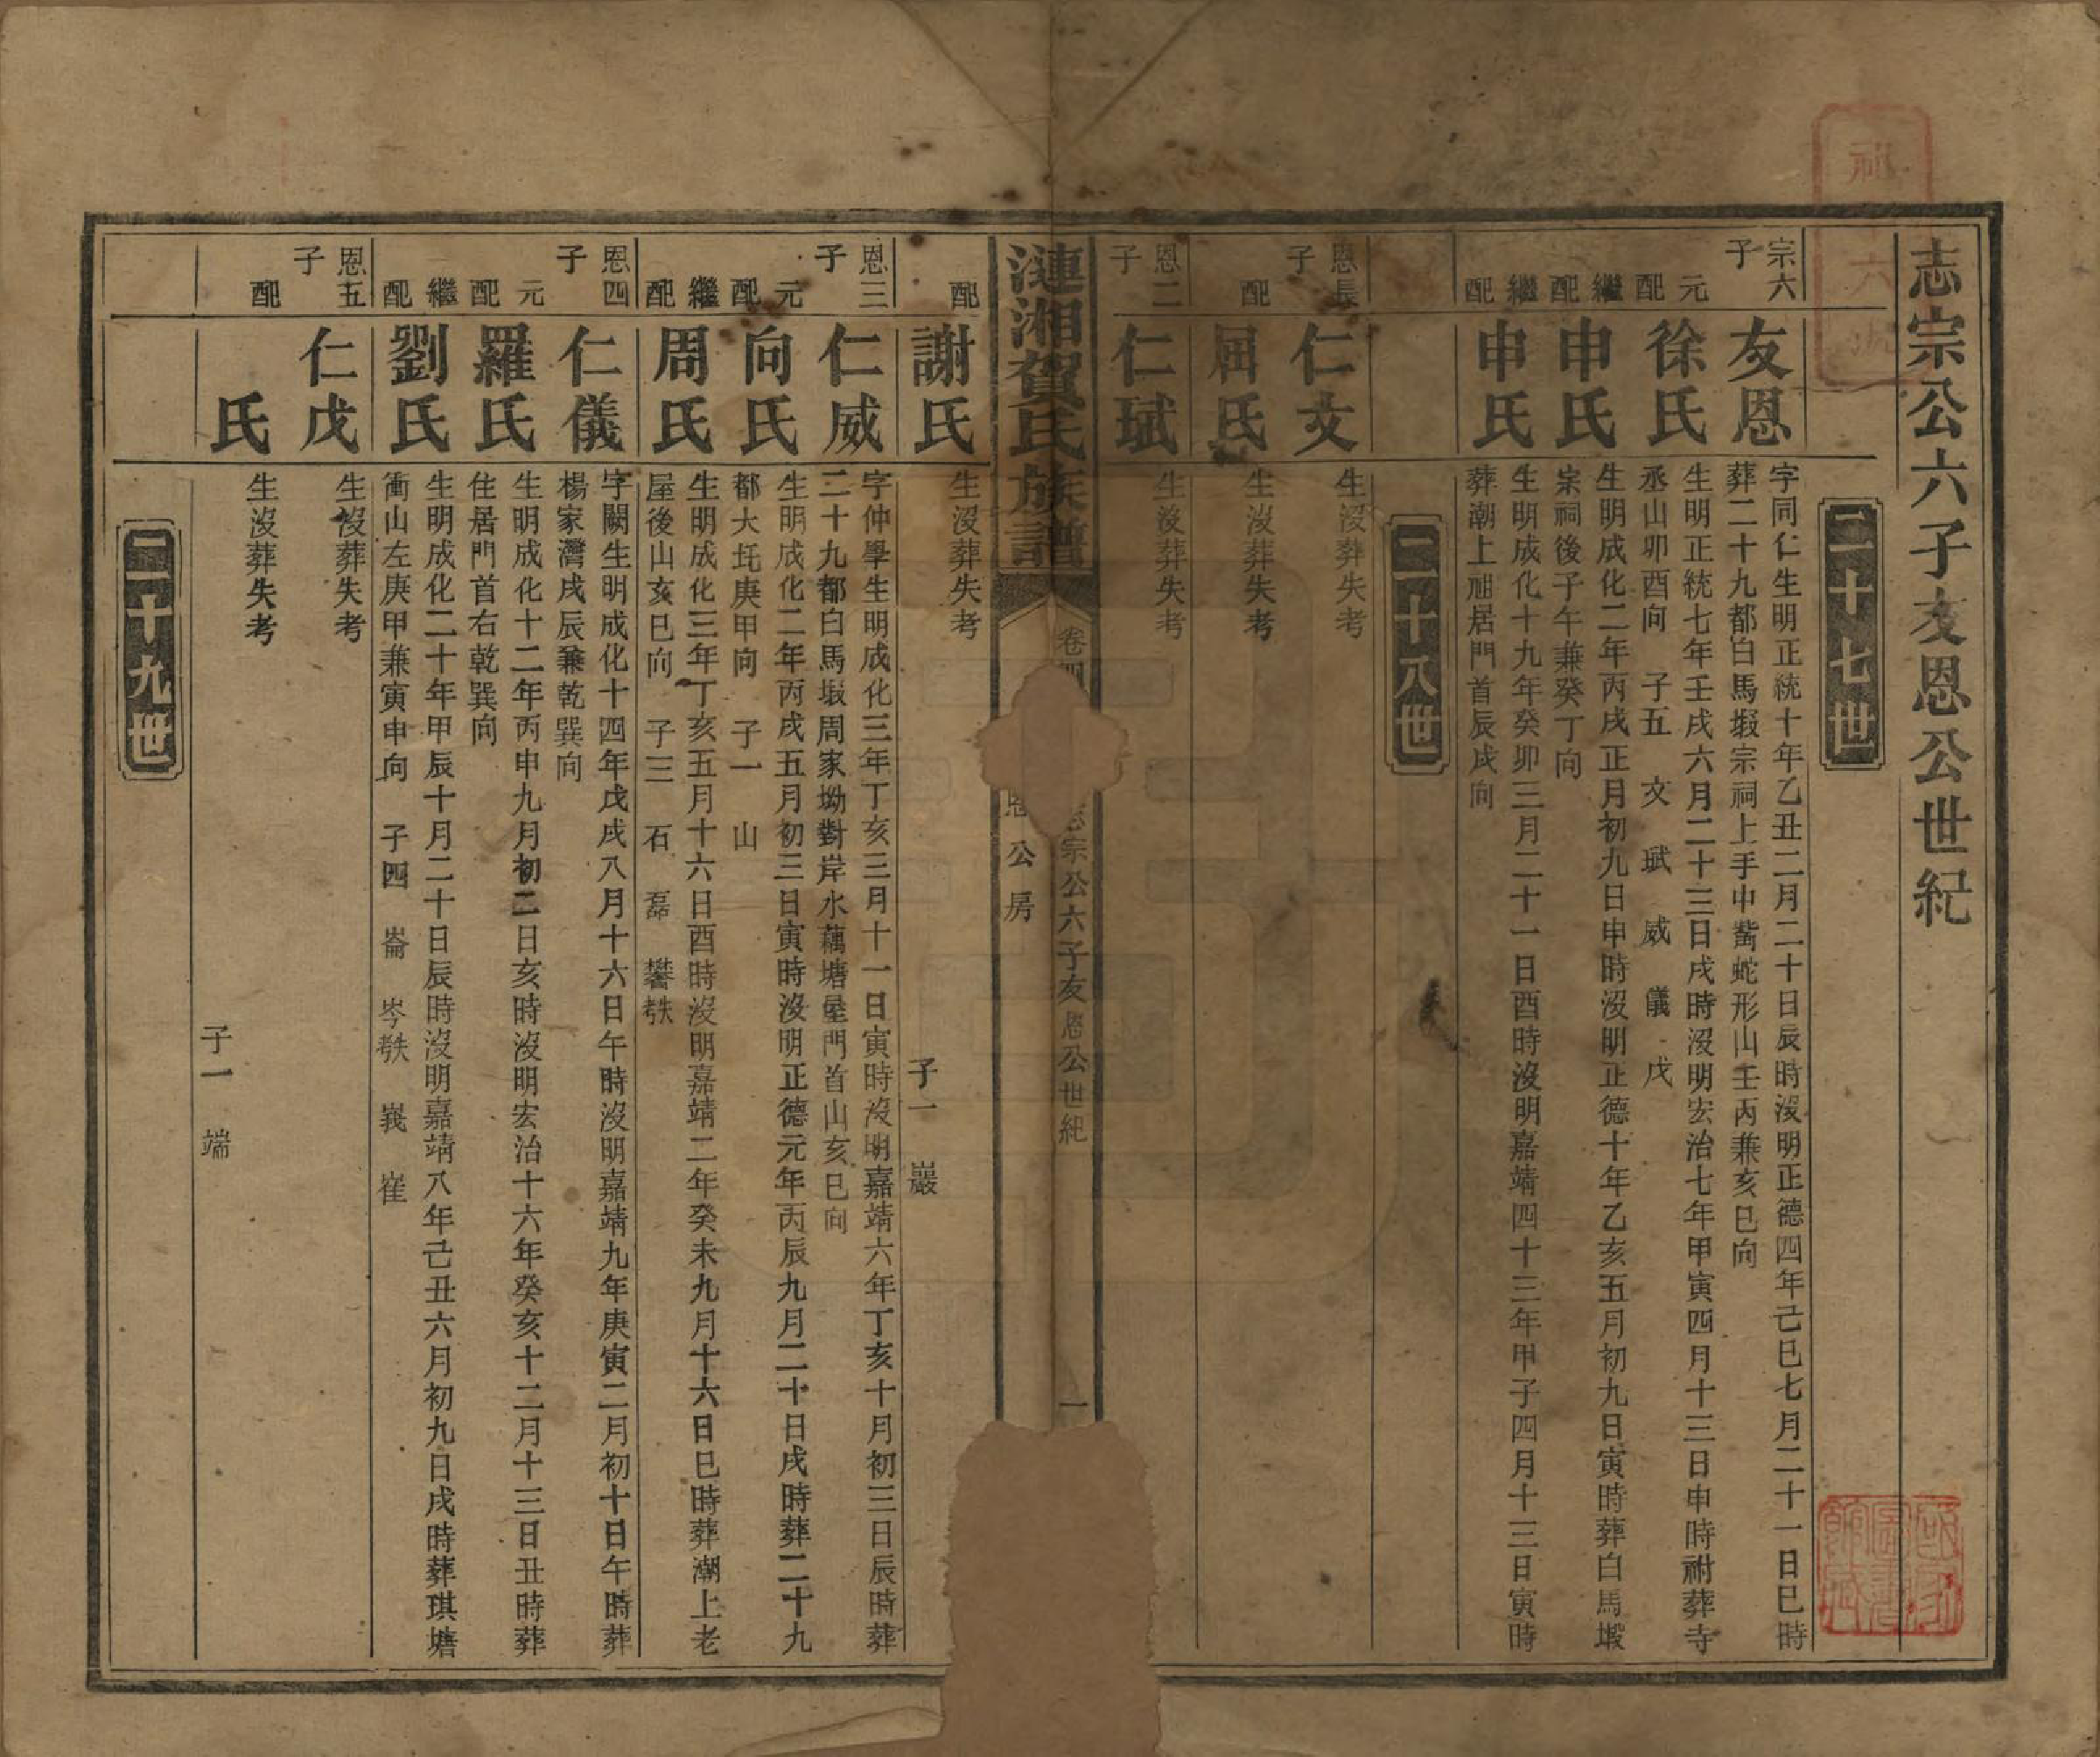 志宗公六子友恩公世紀
二十七世
宗六子
友恩
字同仁生明正統十年乙丑二月二十日辰時沒明正德四年己巳七月二十一日巳時
葬二十九都白馬塅宗祠上手中嘴蛇形山壬丙兼亥巳向
元配
徐氏
生明正統七年壬戌六月二十三日戌時沒明宏治七年甲寅四月十三日申時祔葬寺
丞山卯酉向 子五 文 珷 威 儀 戊
繼配
申氏
生明成化二年丙戌正月初九日申時沒明正德十年乙亥五月初九日寅時葬白馬塅
宗祠後子午兼癸丁向
繼配
申氏
生明成化十九年癸卯三月二十一日酉時沒明嘉靖四十三年甲子四月十三日寅時
葬潮上祖居門首辰戌向
二十八世
恩長子
仁文
生沒葬失考
配
屈氏
生沒葬失考
恩二子
仁珷
生沒葬失考
漣湘賀氏族譜
卷四
志宗公六子友恩公世紀
恩公房
一
配
謝氏
生沒葬失考
子一 巖
恩三子
仁威
字仲學生明成化三年丁亥三月十一日寅時沒明嘉靖六年丁亥十月初三日辰時葬
二十九都白馬塅周家坳對岸水藕塘屋門首山亥巳向
元配
向氏
生明成化二年丙戌五月初三日寅時沒明正德元年丙辰九月二十日戌時葬二十九
都大坵庚甲向 子一 山
繼配
周氏
生明成化三年丁亥五月十六日酉時沒明嘉靖二年癸未九月十六日巳時葬潮上老
屋後山亥巳向 子三 石 磊 礬殀
恩四子
仁儀
字闕生明成化十四年戊戌八月十六日午時沒明嘉靖九年庚寅二月初十日午時葬
楊家灣戌辰兼乾巽向
元配
羅氏
生明成化十二年丙申九月初二日亥時沒明宏治十六年癸亥十二月十三日丑時葬
住居門首右乾巽向
繼配
劉氏
生明成化二十年甲辰十月二十日辰時沒明嘉靖八年己丑六月初九日戌時葬琪塘
衝山左庚甲兼寅申向 子四 崙 岑殀 峩 崔
恩五子
仁戊
生沒葬失考
配
氏
生沒葬失考
子一 端
二十九世